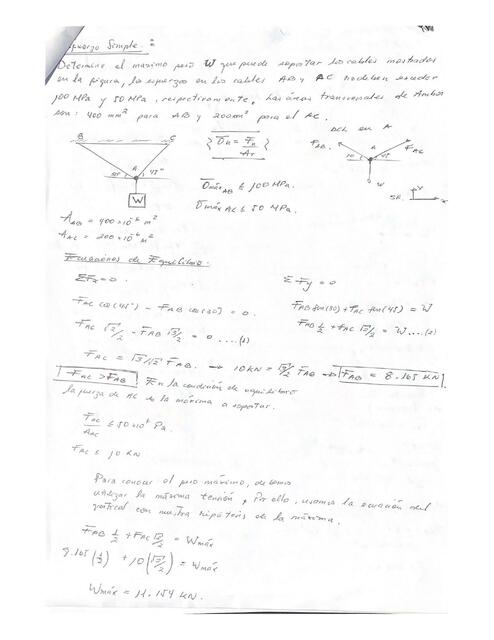 Esfuerzo Simple:
Determine el maximo peso W que puede soportar los cables mostrados
en la figura, los esfuerzos en los cables AB y AC no deben exceder
100 MPa y 50 MPa, respectivamente, Las áreas transversales de Ambos
son: 400 mm² para AB y 200 mm² para el AC.
B C
A
30° 45°
W
σn = Fn / AT
DCL en A
FAB FAC
A
30 45
W
SR. Y X
σmáx AB ≤ 100 MPa.
σmáx AC ≤ 50 MPa.
AAB = 400×10⁻⁶ m²
AAC = 200×10⁻⁶ m²
Ecuaciones de Equilibrio.
ΣFx = 0. ΣFy = 0
FAC cos(45°) - FAB cos(30) = 0. FAB sen(30) + FAC sen(45) = W
FAC √2/2 - FAB √3/2 = 0 ....(1) FAB 1/2 + FAC √2/2 = W....(2)
FAC = √3/√2 FAB. → 10 KN = √3/√2 FAB → FAB = 8.165 KN
FAC > FAB En la condición de equilibrio
la fuerza de AC es la máxima a soportar.
FAC / AAC ≤ 50×10⁶ Pa.
FAC ≤ 10 KN
Para conocer el peso máximo, debemos
utilizar la máxima tensión, Por ello, usamos la ecuación
vertical con nuestra hipótesis de la máxima.
FAB 1/2 + FAC √2/2 = Wmáx
8.165(1/2) + 10(√2/2) = Wmáx
Wmáx = 11.154 KN.